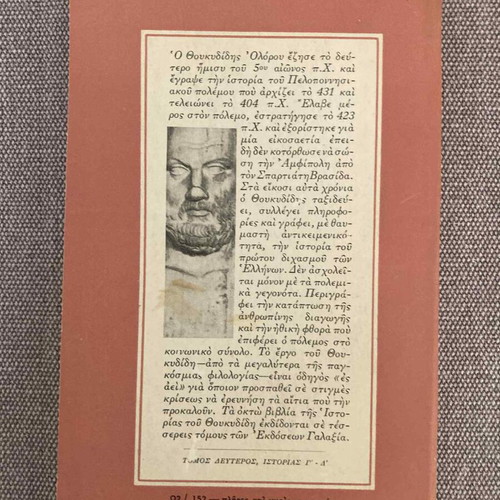 Ὁ Θουκυδίδης Ὀλόρου ἔζησε τὸ δεύ-
τερο ἥμισυ τοῦ 5ου αἰῶνος π.Χ. καὶ
ἔγραψε τὴν ἱστορία τοῦ Πελοποννησι-
ακοῦ πολέμου ποὺ ἀρχίζει τὸ 431 καὶ
τελειώνει τὸ 404 π.Χ. Ἔλαβε μέ-
ρος στὸν πόλεμο, ἐστρατήγησε τὸ 423
π.Χ. καὶ ἐξορίστηκε γιὰ
μία εἰκοσαετία ἐπει-
δὴ δὲν κατόρθωσε νὰ σώ-
ση τὴν Ἀμφίπολη ἀπὸ
τὸν Σπαρτιάτη Βρασίδα.
Στὰ εἴκοσι αὐτὰ χρόνια
ὁ Θουκυδίδης ταξιδεύ-
ει, συλλέγει πληροφο-
ρίες καὶ γράφει, μὲ θαυ-
μαστὴ ἀντικειμενικό-
τητα, τὴν ἱστορία τοῦ
πρώτου διχασμοῦ τῶν
Ἑλλήνων. Δὲν ἀσχολεῖ-
ται μόνον μὲ τὰ πολεμι-
κὰ γεγονότα. Περιγρά-
φει τὴν κατάπτωση τῆς
ἀνθρωπίνης διαγωγῆς
καὶ τὴν ἠθικὴ φθορὰ ποὺ
ἐπιφέρει ὁ πόλεμος στὸ
κοινωνικὸ σύνολο. Τὸ ἔργο τοῦ Θου-
κυδίδη —ἀπὸ τὰ μεγαλύτερα τῆς παγ-
κόσμιας φιλολογίας— εἶναι ὁδηγὸς «ἐς
ἀεὶ» γιὰ ὅποιον προσπαθεῖ σὲ στιγμὲς
κρίσεως νὰ ἐρευνήση τὰ αἴτια ποὺ τὴν
προκαλοῦν. Τὰ ὀκτὼ βιβλία τῆς Ἱστο-
ρίας τοῦ Θουκυδίδη ἐκδίδονται σὲ τέσ-
σερεις τόμους τῶν Ἐκδόσεων Γαλαξία.
ΤΟΜΟΣ ΔΕΥΤΕΡΟΣ, ΙΣΤΟΡΙΑΣ Γ' - Δ'